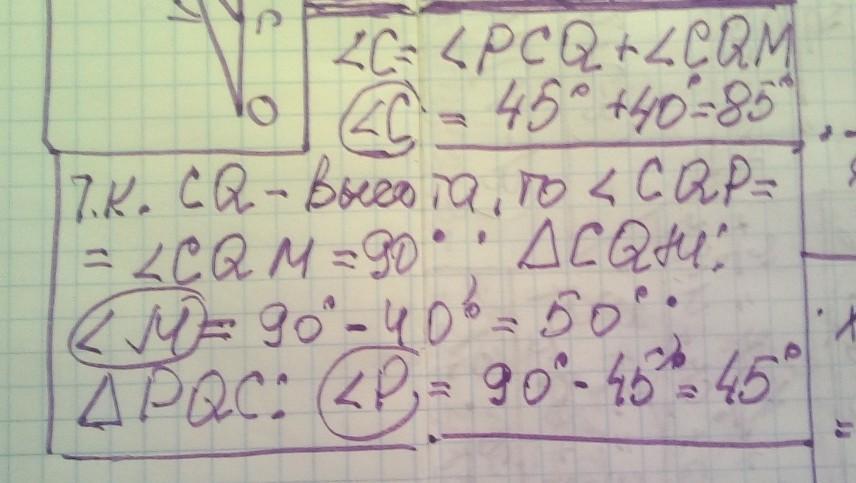 O
∠C= ∠PCQ+∠CQM
∠C = 45° +40°=85°
Т.к. CQ - высота, то ∠CQP=
= ∠CQM =90°. ΔCQM:
∠M= 90° - 40° = 50°.
ΔPQC: ∠P = 90° - 45° = 45°